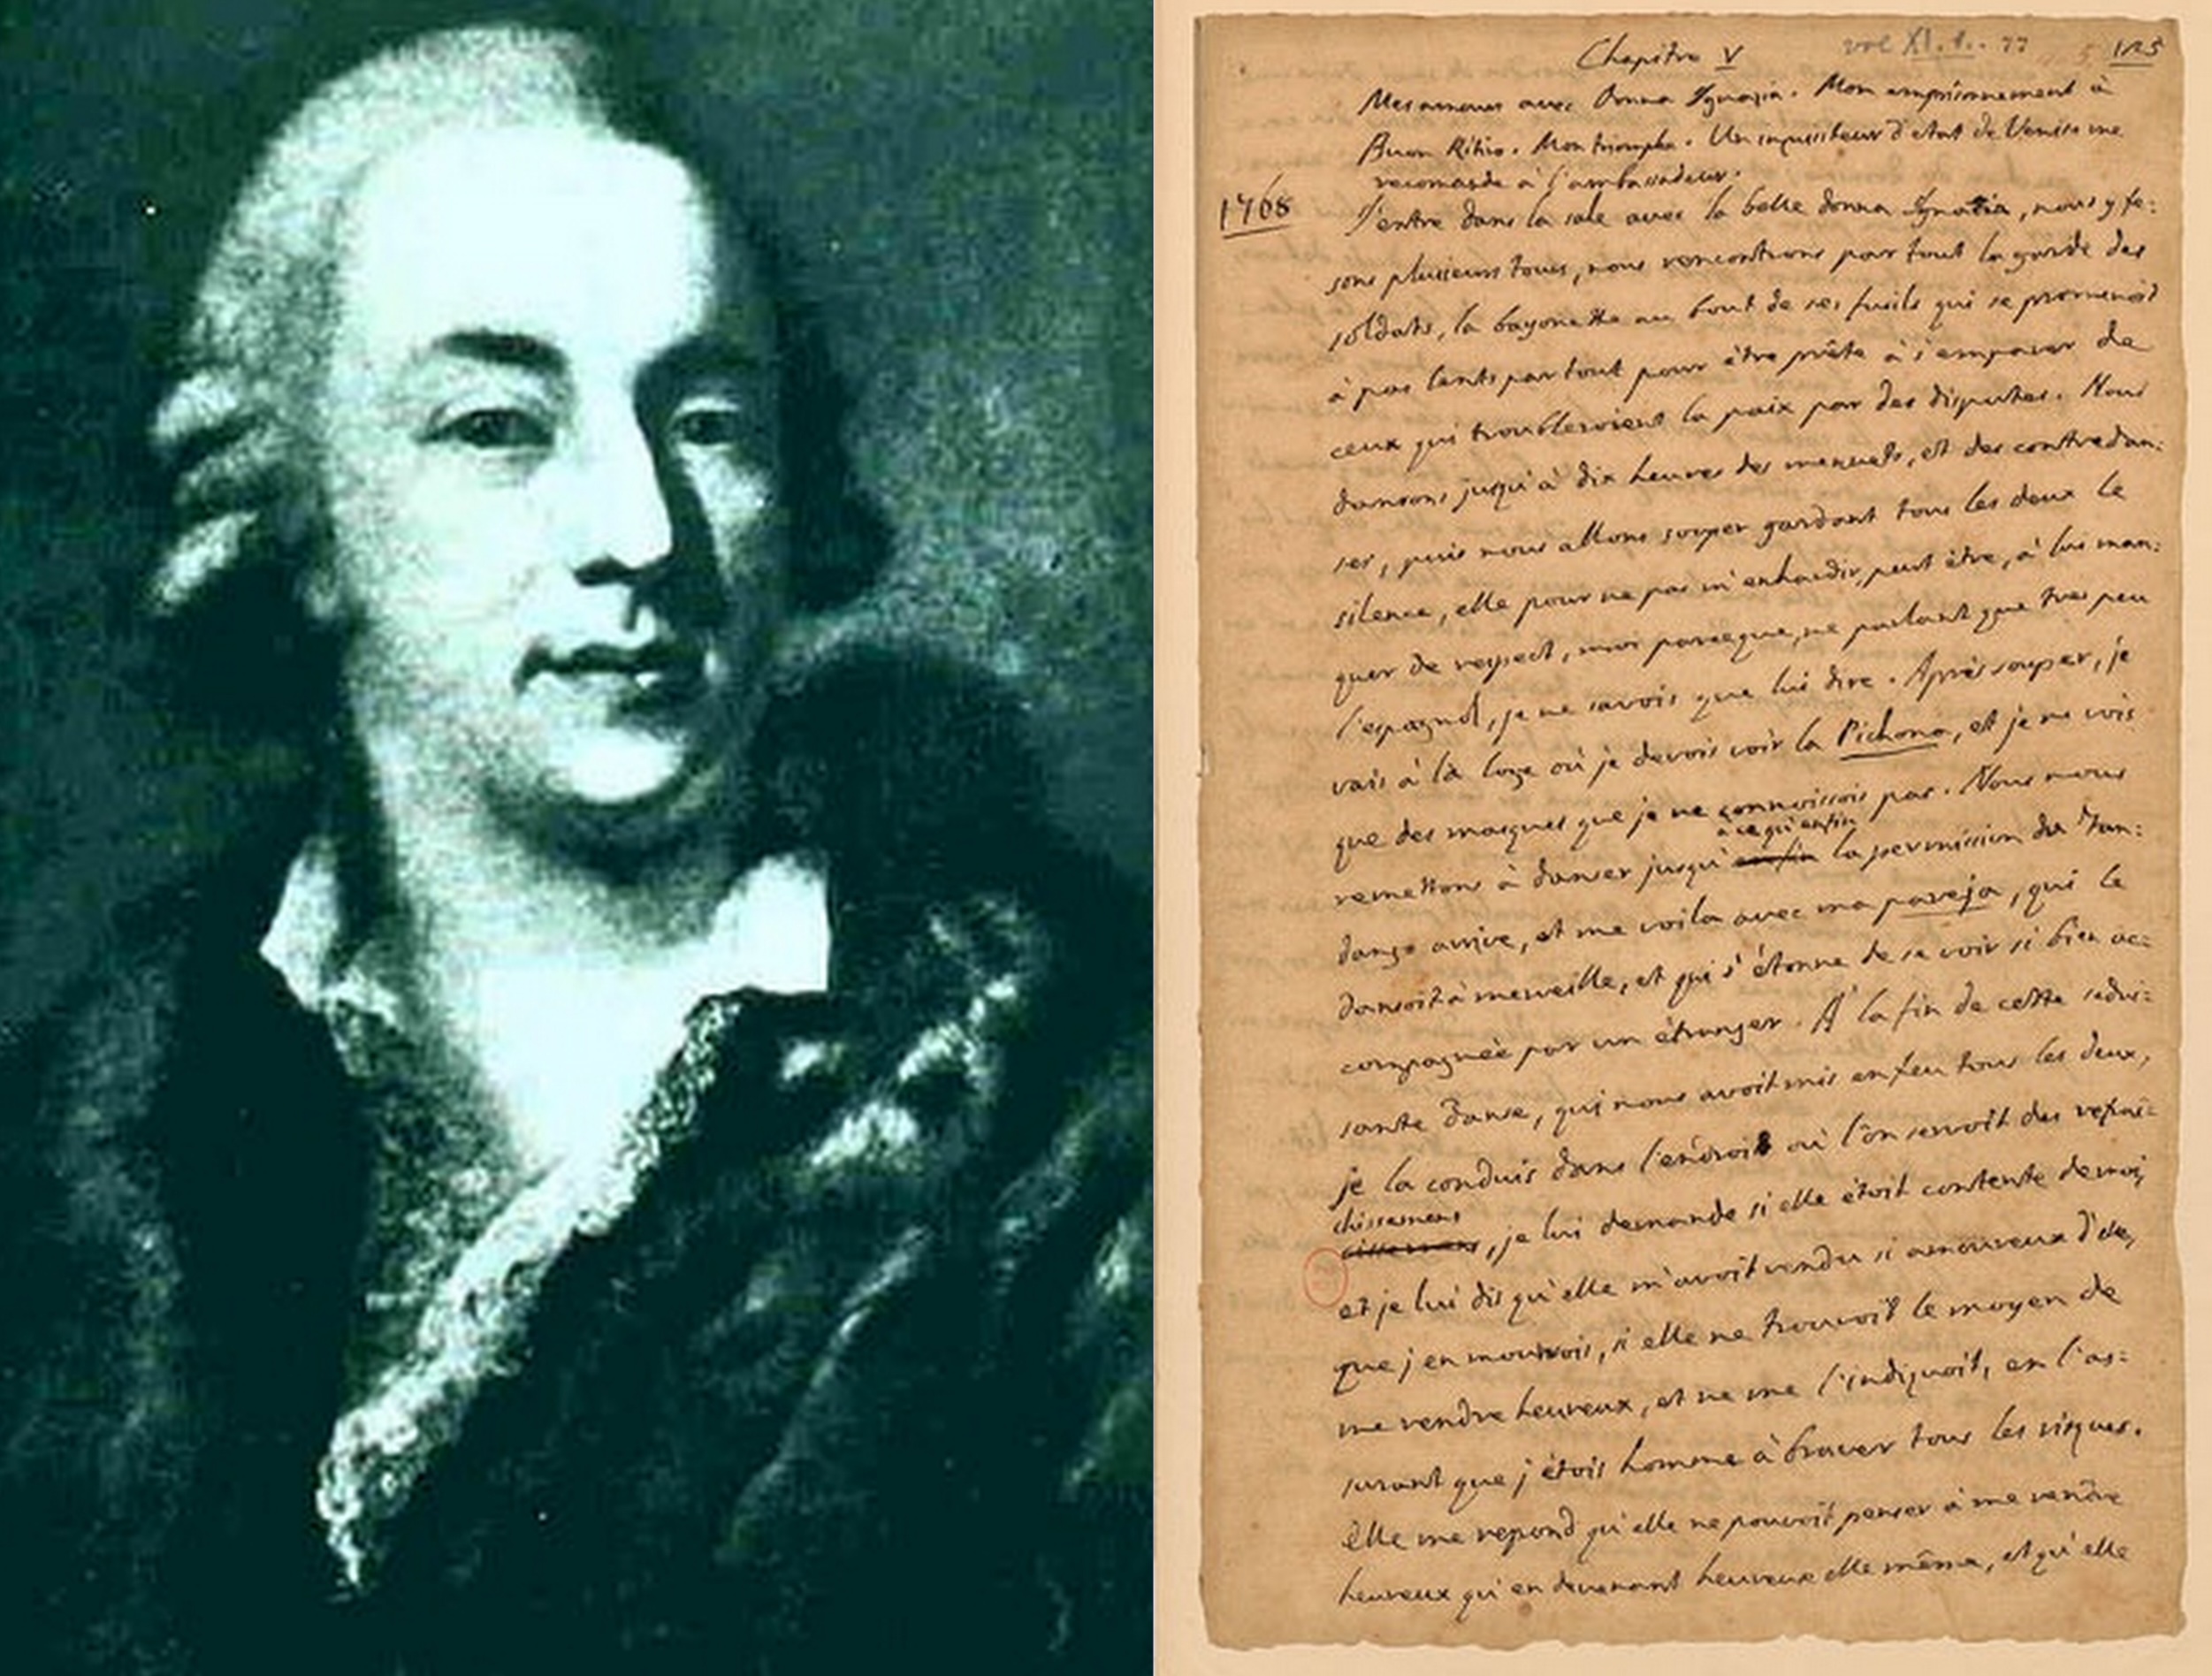 Chapitre V
vol XI. 1. 77
125
Mes amours avec Donna Ignazia. Mon emprisonnement à
Buon Ritiro. Mon triomphe. Un inquisiteur d'etat de Venise me
recomande à l'ambassadeur.
1768
J'entre dans la sale avec la belle donna Ignatia, nous y fe:
sons plusieurs tours, nous rencontrions par tout la garde des
soldats, la bayonette au bout de ses fusils qui se promenoit
à pas lents par tout pour être prête à s'emparer de
ceux qui troubleroient la paix par des disputes. Nous
dansons jusqu'à dix heures des menuets, et des contredan:
ses, puis nous allons souper gardant tous les deux le
silence, elle pour ne pas m'enhardir, peut être, à lui man:
quer de respect, moi parceque, ne parlant que tres peu
l'espagnol, je ne savois que lui dire. Après souper, je
vais à la loge où je devois voir la Pichona, et je ne vois
que des masques que je ne connoissois pas. Nous nous
à ce qu'enfin
remettons à danser jusqu' enfin la permission du fan:
dango arrive, et me voila avec ma pareja, qui le
dansoit à merveille, et qui s'étonne de se voir si bien ac:
compagnée par un étranger. À la fin de cette sedui:
sante danse, qui nous avoit mis en feu tous les deux,
je la conduis dans l'endroit où l'on servoit des rafraî:
chissemens
cissemens, je lui demande si elle étoit contente de moi,
et je lui dis qu'elle m'avoit rendu si amoureux d'elle,
que j'en mourrois, si elle ne trouvoit le moyen de
me rendre heureux, et ne me l'indiquoit, en l'as:
surant que j'étois homme à braver tous les risques.
Elle me repond qu'elle ne pouvoit penser à me rendre
heureux qu'en devenant heureuse elle même, et qu'elle